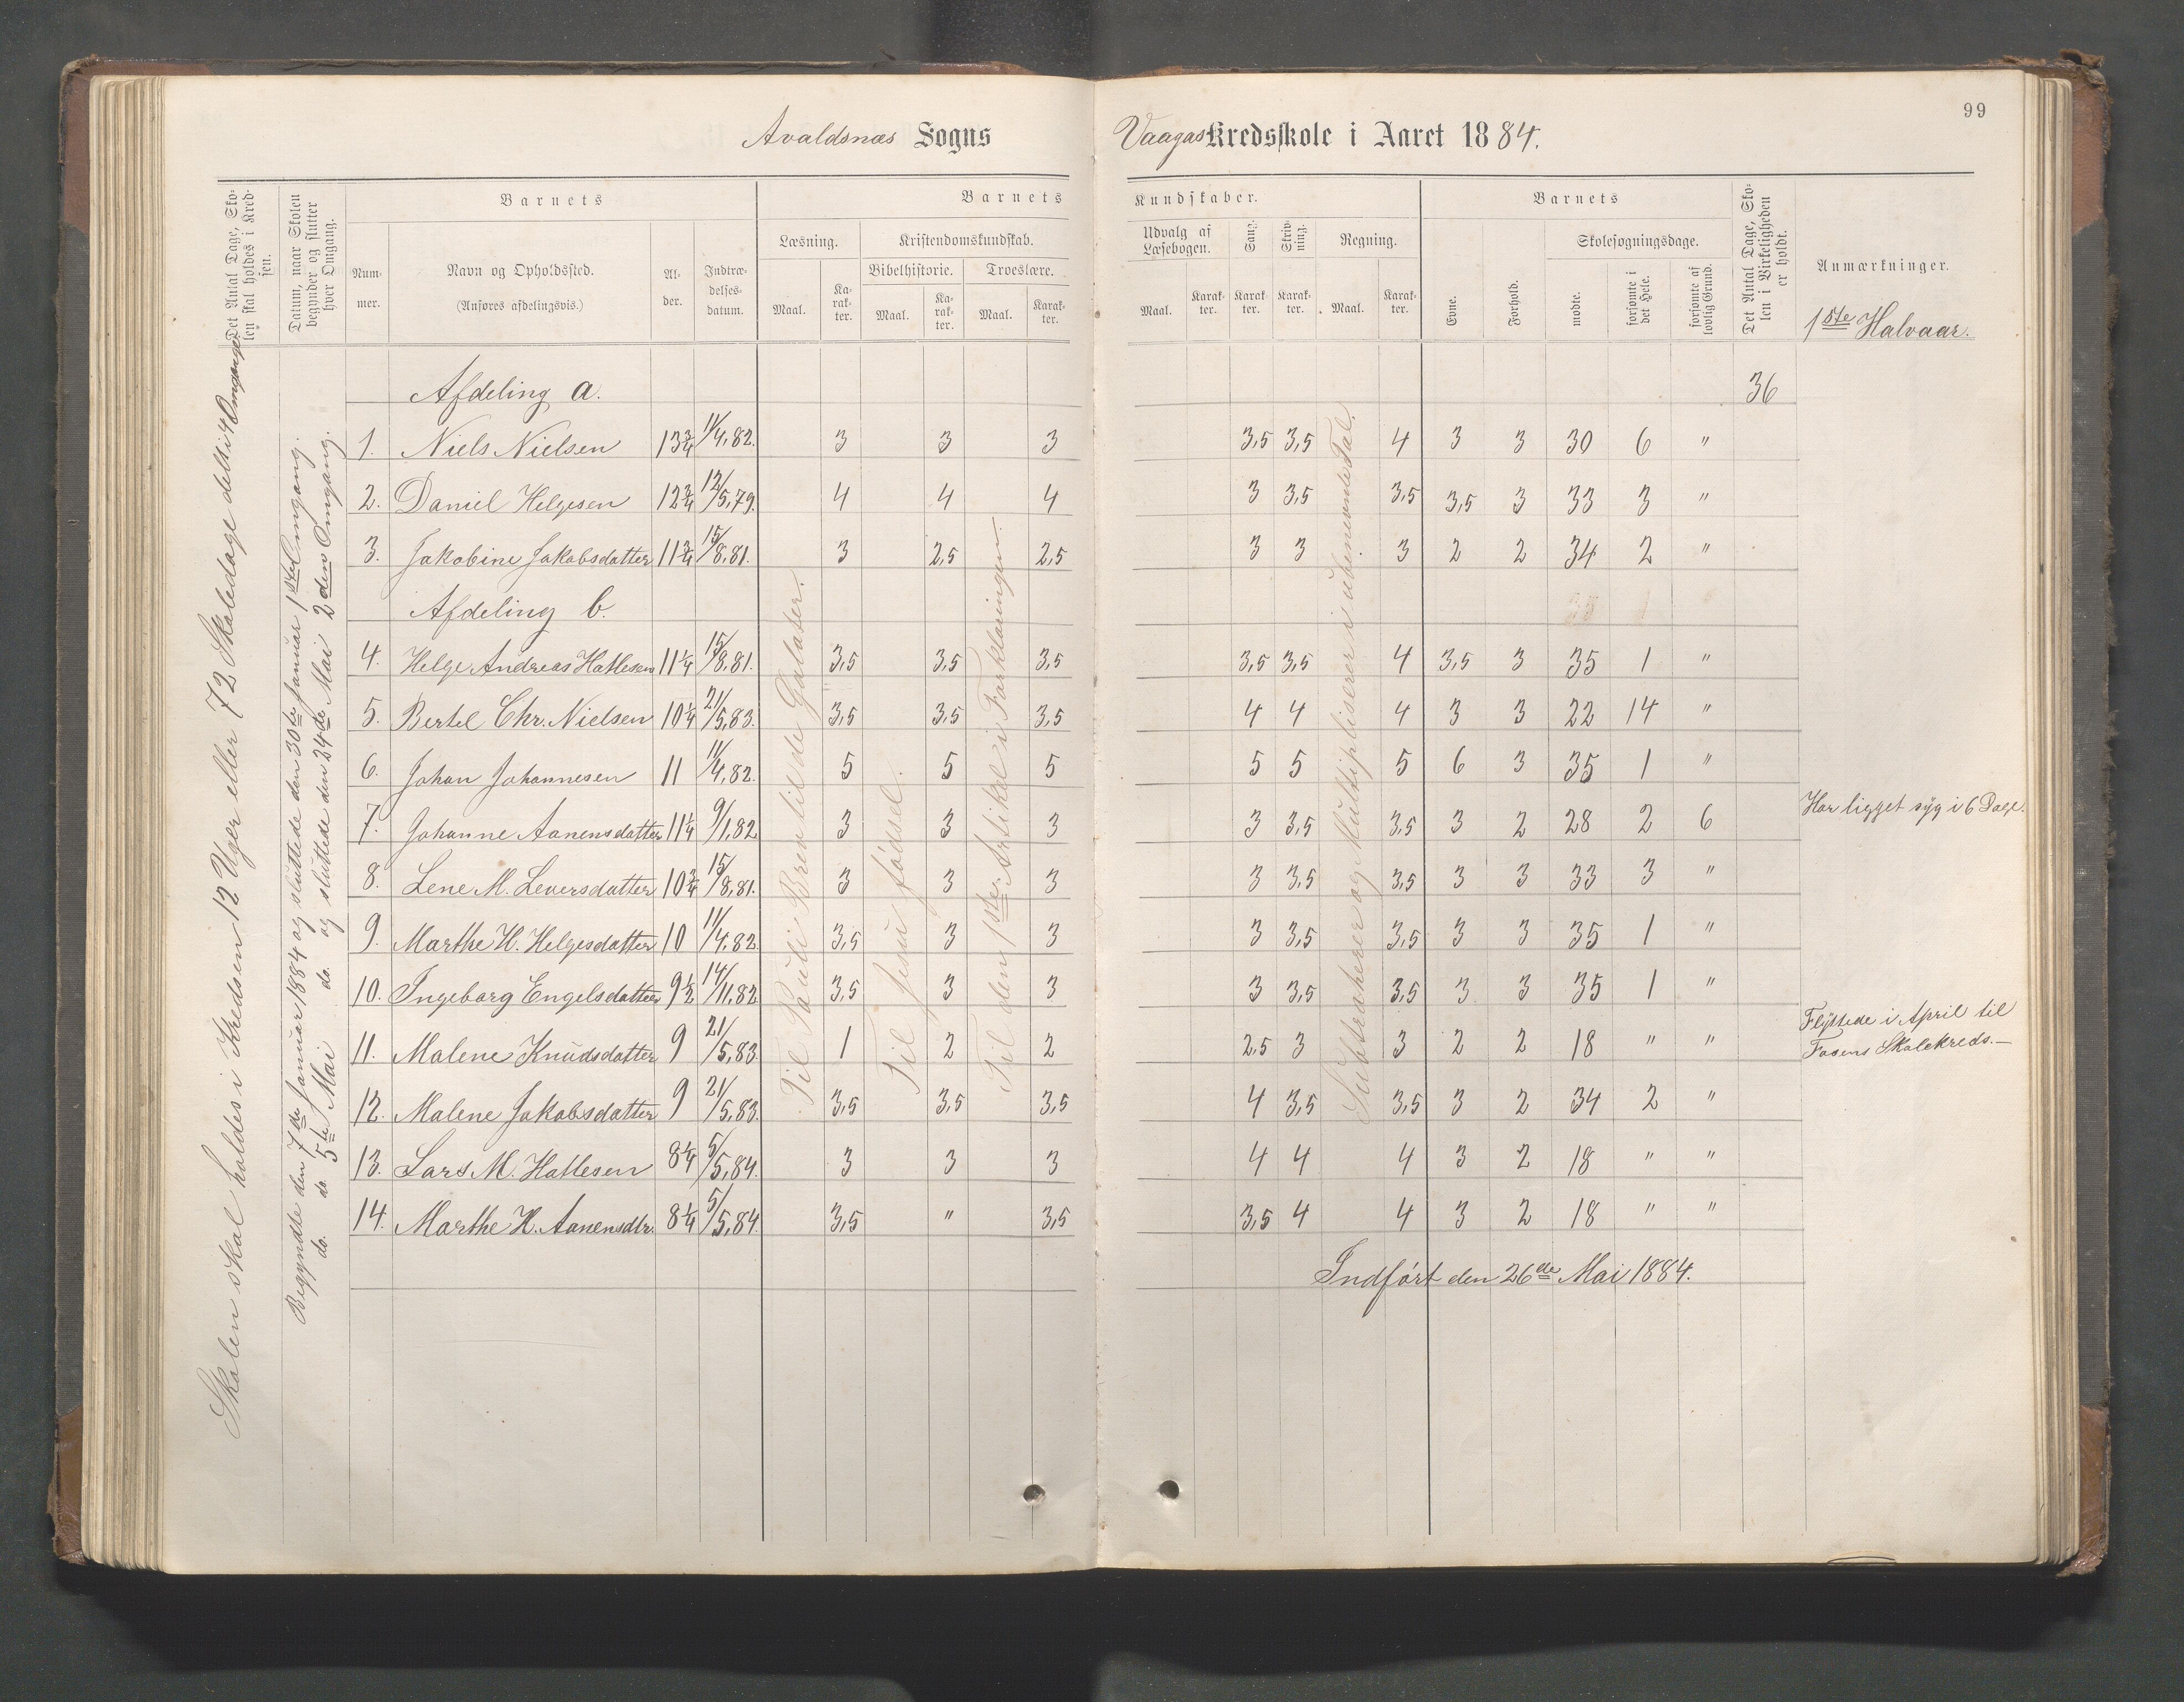 99
Avaldsnæs Sogns Vaagas Kredsskole i Aaret 1884.
Det Antal Dage, Skolen skal holdes i Kredsen.
Datum, naar Skolen begynder og slutter hver Omgang.
Barnets
Nummer.
Navn og Opholdssted.
(Anføres afdelingsvis.)
Alder.
Indtrædelsesdatum.
Barnets Kundskaber.
Læsning.
Maal. Karakter.
Kristendomskundskab.
Bibelhistorie. Troeslære.
Maal. Karakter. Maal. Karakter.
Udvalg af Læsebogen.
Maal. Karakter.
Sang. Karakter.
Skrivning. Karakter.
Regning.
Maal. Karakter.
Barnets
Evne. Forhold.
Skolesøgningsdage.
mødte. forsømte i det Hele. forsømte af lovlig Grund.
Det Antal Dage, Skolen i Virkeligheden er holdt.
Anmærkninger.
1ste Halvaar.
Skolen skal holdes i Kredsen 12 Uger eller 72 Skoledage delt i 4 Omgange.
Begyndte den 7de Januar 1884 og sluttede den 30te Januar 1ste Omgang.
do. do. 5te Mai do. og sluttede den 24de Mai 2den Omgang.
Til Pauli Brev til de Galater.
Til Jesu fødsel.
Til den 1ste Artikel i Forklaringen.
Subtraherer og Multipliserer i ubenævnte Tal.
Afdeling a. 36
1. Niels Nielsen 13 3/4 11/4,82. 3 3 3 3,5 3,5 4 3 3 30 6 "
2. Daniel Helgesen 12 3/4 12/5,79. 4 4 4 3 3,5 3,5 3,5 3 33 3 "
3. Jakobine Jakobsdatter 11 3/4 15/8,81. 3 2,5 2,5 3 3 3 2 2 34 2 "
Afdeling b.
4. Helge Andreas Hatlesen 11 1/4 15/8,81. 3,5 3,5 3,5 3,5 3,5 4 3,5 3 35 1 "
5. Bertel Chr. Nielsen 10 1/4 21/5,83. 3,5 3,5 3,5 4 4 4 3 3 22 14 "
6. Johan Johannesen 11 11/4,82. 5 5 5 5 5 5 6 3 35 1 "
7. Johanne Aanensdatter 11 1/4 9/1,82 3 3 3 3 3,5 3,5 3 2 28 2 6 Har ligget syg i 6 Dage.
8. Lene M. Leversdatter 10 3/4 15/8,81. 3 3 3 3 3,5 3,5 3 3 33 3 "
9. Marthe H. Helgesdatter 10 11/4,82. 3,5 3 3 3 3,5 3,5 3 3 35 1 "
10. Ingeborg Engelsdatter 9 1/2 14/11,82 3,5 3 3 3 3,5 3,5 3 3 35 1 "
11. Malene Knudsdatter 9 21/5,83. 1 2 2 2,5 3 3 2 2 18 " " Flyttede i April til
Fosens Skolekreds.—
12. Malene Jakobsdatter 9 21/5,83. 3,5 3,5 3,5 4 3,5 3,5 3 2 34 2 "
13. Lars M. Hatlesen 8 1/4 5/5,84. 3 3 3 4 4 4 3 2 18 " "
14. Marthe H. Aanensdtr. 8 1/4 5/5,84. 3,5 " 3,5 3,5 4 4 3 2 18 " "
Indført den 26de Mai 1884.